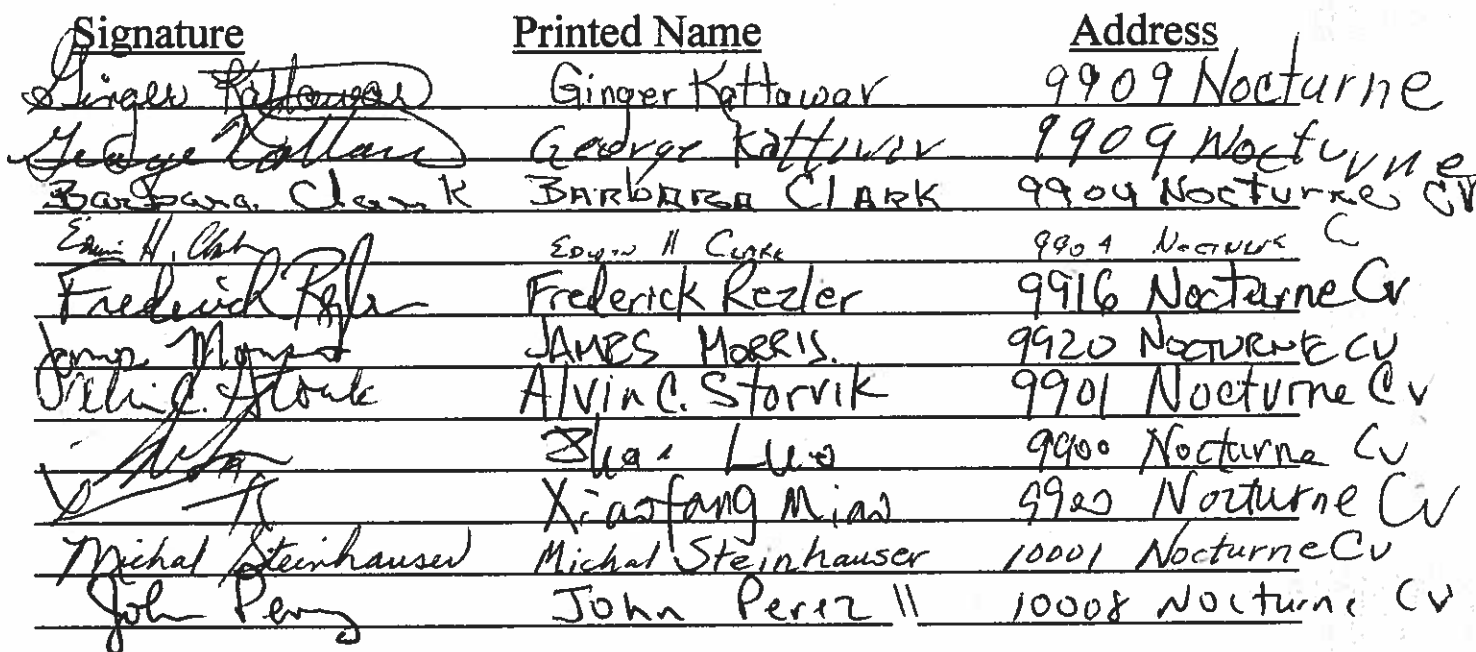 Signature Printed Name Address
Ginger Kattawar Ginger Kattawar 9909 Nocturne
George Kattawar George Kattawar 9909 Nocturne
Barbara Clark BARBARA CLARK 9904 Nocturne CV
Edwin H. Clark EDWIN H CLARK 9904 NOCTURNE C
Frederick Rezler Frederick Rezler 9916 Nocturne Cv
James Morris JAMES MORRIS. 9920 NOCTURNE CV
Alvin C. Storvik Alvin C. Storvik 9901 Nocturne Cv
Luo 9900 Nocturne Cv
Xiaofang Miao 9900 Nocturne Cv
Michal Steinhauser Michal Steinhauser 10001 Nocturne Cv
John Perez John Perez II 10008 Nocturne Cv